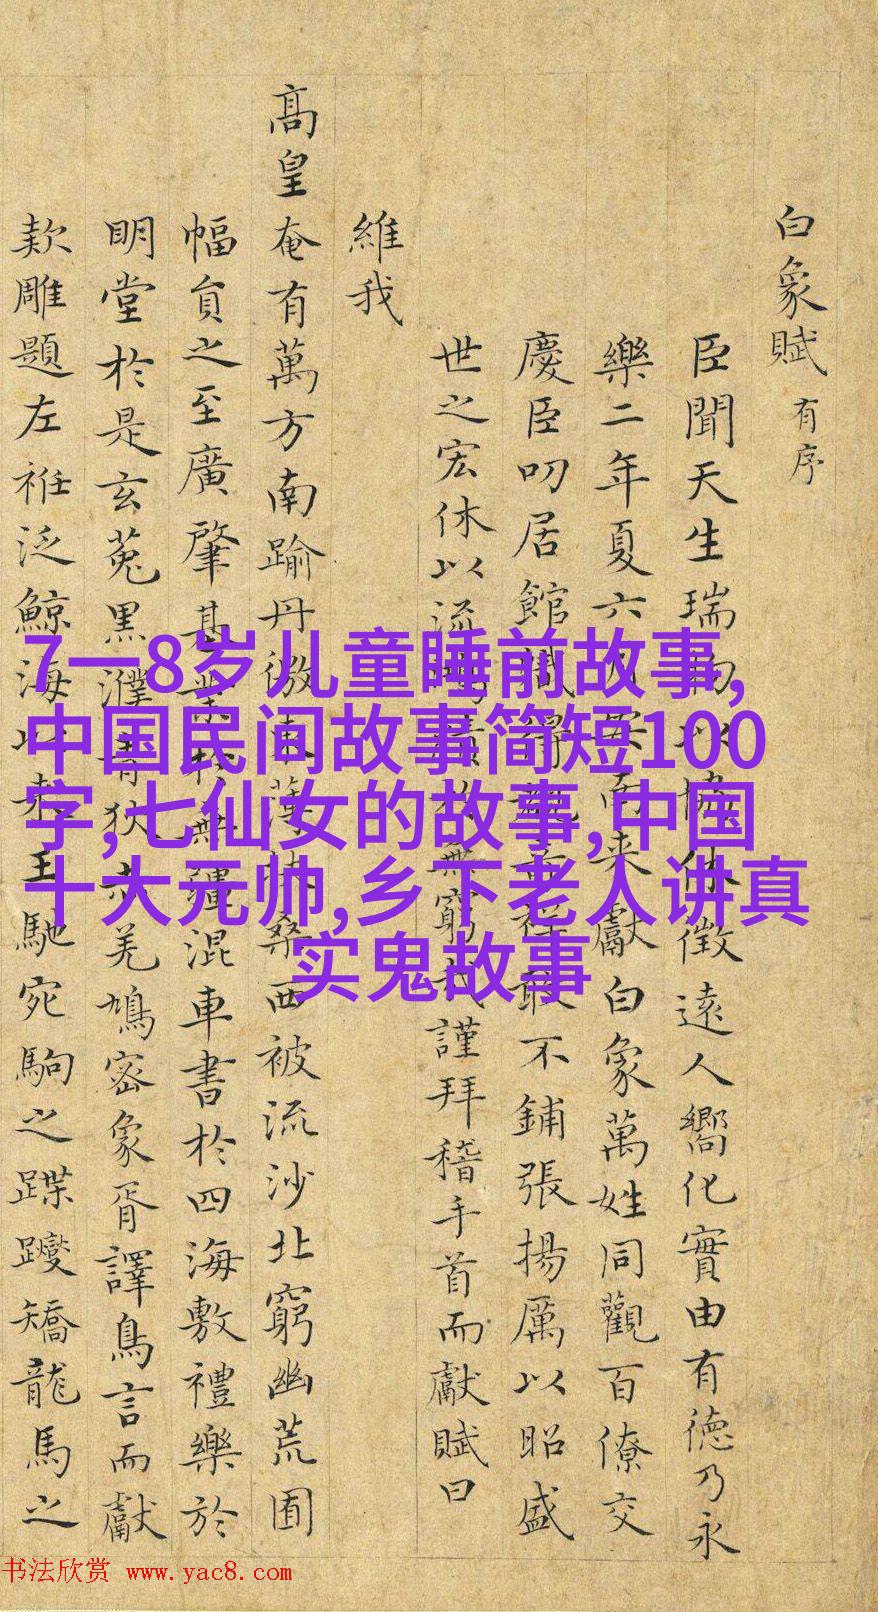 白象賦 有序
臣聞天生瑞物以協休徵遠人嚮化實由有德乃永
樂二年夏六月安南來獻白象萬姓同觀百僚交
慶臣叨居館職得敢不鋪張揚厲以昭盛
世之宏休以流於無窮哉謹拜稽手首而獻賦曰
維我
高皇奄有萬方南踰丹徼東薄扶桑西被流沙北窮幽荒囿
幅員之至廣肇基業於無疆混車書於四海敷禮樂於
明堂於是玄菟黑濮青狄赤羌鳩密象胥譯鳥言而獻
欵雕題左袵泛鯨海以來王馳宛駒之蹀躞矯龍馬之
7—8岁儿童睡前故事,
中国民间故事简短100
字,七仙女的故事,中国
十大元帅,乡下老人讲真
实鬼故事
书法欣赏 www.yac8.com